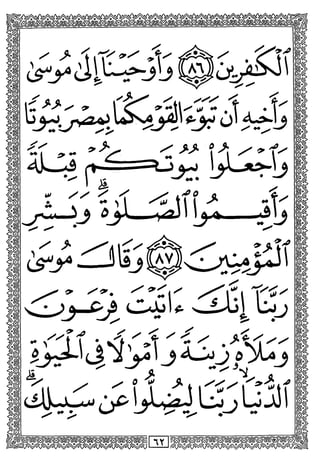 ٱلْكَٰفِرِينَ ٨٦ وَأَوْحَيْنَآ إِلَىٰ مُوسَىٰ
وَأَخِيهِ أَن تَبَوَّءَا لِقَوْمِكُمَا بِمِصْرَ بُيُوتًا
وَٱجْعَلُوا۟ بُيُوتَكُمْ قِبْلَةً
وَأَقِيمُوا۟ ٱلصَّلَوٰةَ ۗ وَبَشِّرِ
ٱلْمُؤْمِنِينَ ٨٧ وَقَالَ مُوسَىٰ
رَبَّنَآ إِنَّكَ ءَاتَيْتَ فِرْعَوْنَ
وَمَلَأَهُۥ زِينَةً وَأَمْوَٰلًا فِى ٱلْحَيَوٰةِ
ٱلدُّنْيَا رَبَّنَا لِيُضِلُّوا۟ عَن سَبِيلِكَ ۖ
٦٢